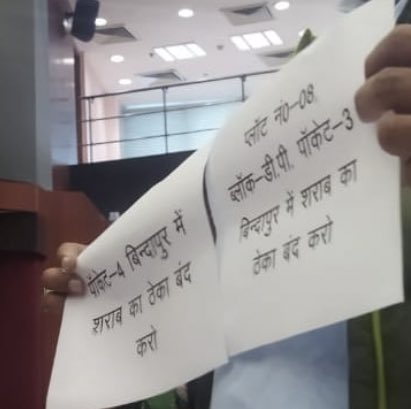 पॉकेट-4 बिन्दापुर में
शराब का ठेका बंद
करो
प्लॉट नं0-08,
ब्लॉक-डी.पी. पॉकेट-3
बिन्दापुर में शराब का
ठेका बंद करो